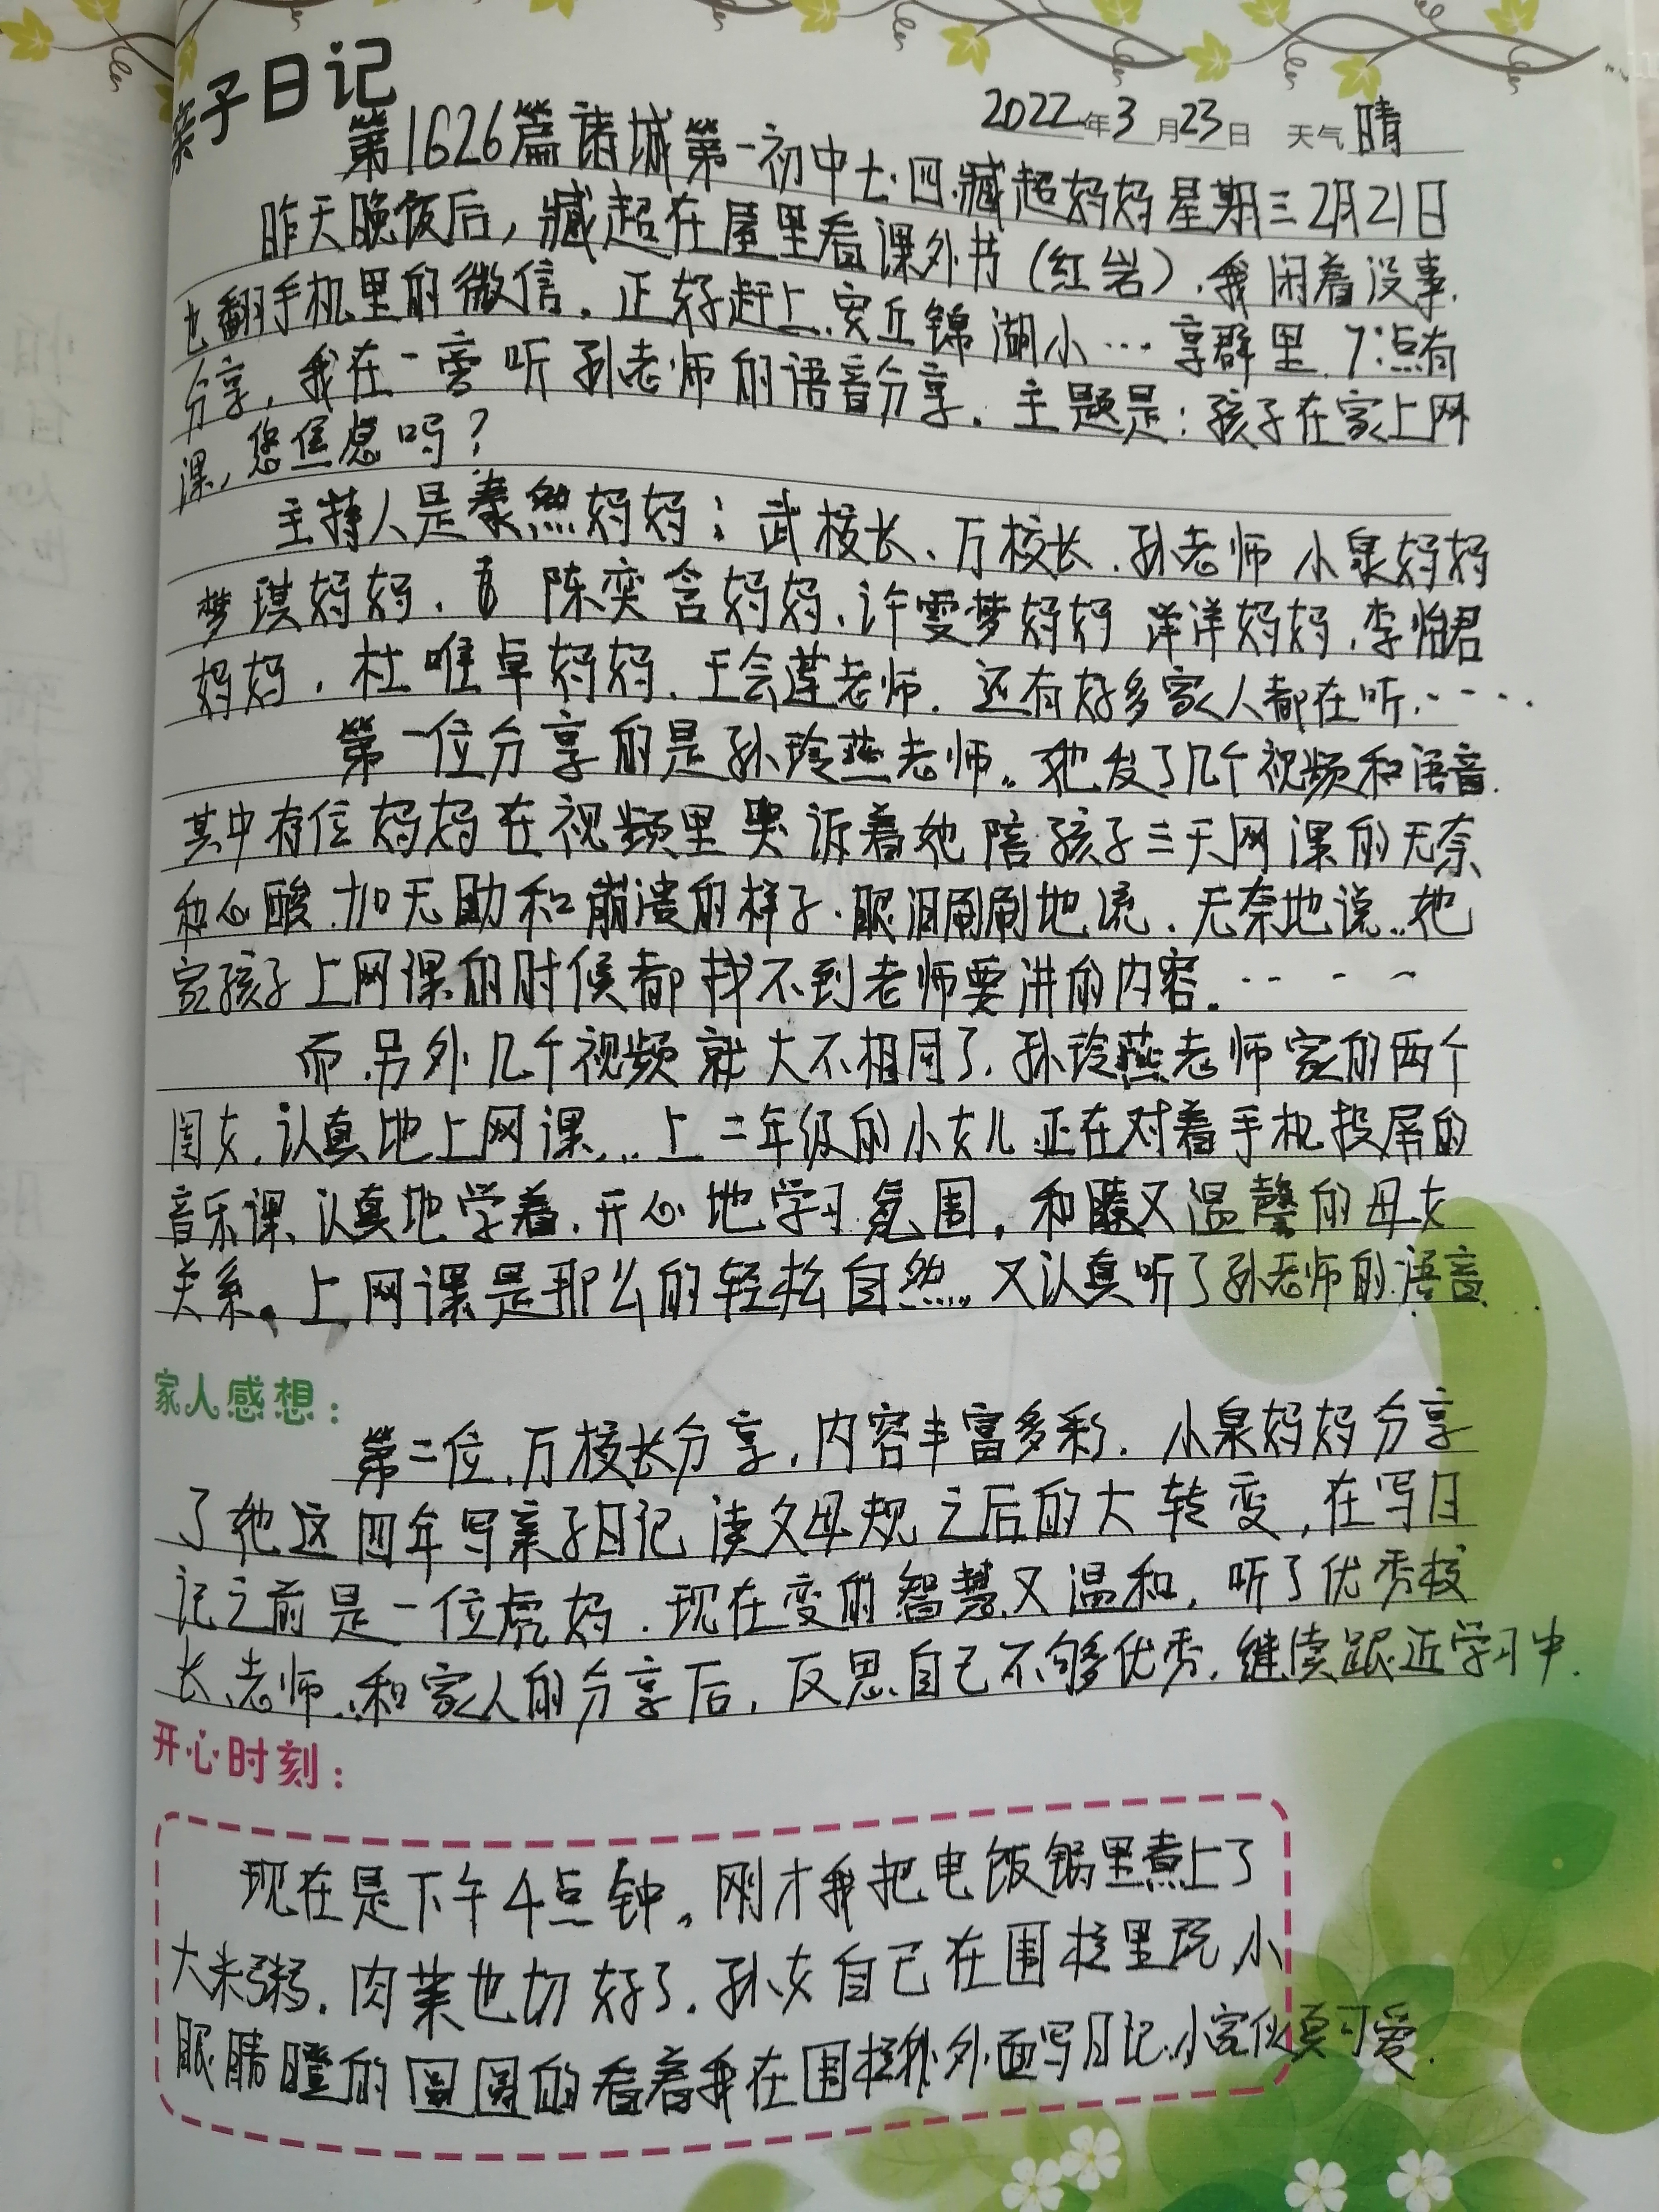 亲子日记
2022年3月23日 天气 晴
第1626篇诸城第一初中七·四.臧超妈妈星期三2月21日
昨天晚饭后，臧超在屋里看课外书（红岩）.我闲着没事.
也翻手机里的微信。正好赶上.安丘锦湖小…享群里.7:点有
分享，我在一旁听孙老师的语音分享。主题是：孩子在家上网
课，您焦虑吗？
主持人是秦然妈妈；武校长、万校长.孙老师 小泉妈妈
梦琪妈妈. 陈奕含妈妈.许雯梦妈妈 洋洋妈妈.李怡君
妈妈.杜唯卓妈妈.王会莲老师.还有好多家人都在听.…
第一位分享的是孙玲燕老师。她发了几个视频和语音.
其中有位妈妈在视频里哭诉着她陪孩子三天网课的无奈
和心酸.加无助和崩溃的样子.眼泪刷刷地流.无奈地说..她
家孩子上网课的时候都找不到老师要讲的内容。…
而.另外几个视频就大不相同了.孙玲燕老师家的两个
闺女.认真地上网课...上二年级的小女儿正在对着手机投屏的
音乐课.认真地学着.开心地学习氛围.和睦又温馨的母女
关系。上网课是那么的轻松自然..又认真听了孙老师的语音..
家人感想：
第二位.万校长分享.内容丰富多彩.小泉妈妈分享
了她这四年写亲子日记读父母规之后的大转变,在写日
记之前是一位虎妈.现在变的智慧又温和,听了优秀校
长.老师.和家人的分享后,反思自己不够优秀.继续跟近学习中.
开心时刻：
现在是下午4点钟。刚才我把电饭锅里煮上了
大米粥.肉菜也切好了.孙女自己在围栏里玩,小
眼睛瞪的圆圆的看着我在围栏外面写日记.小家伙真可爱.